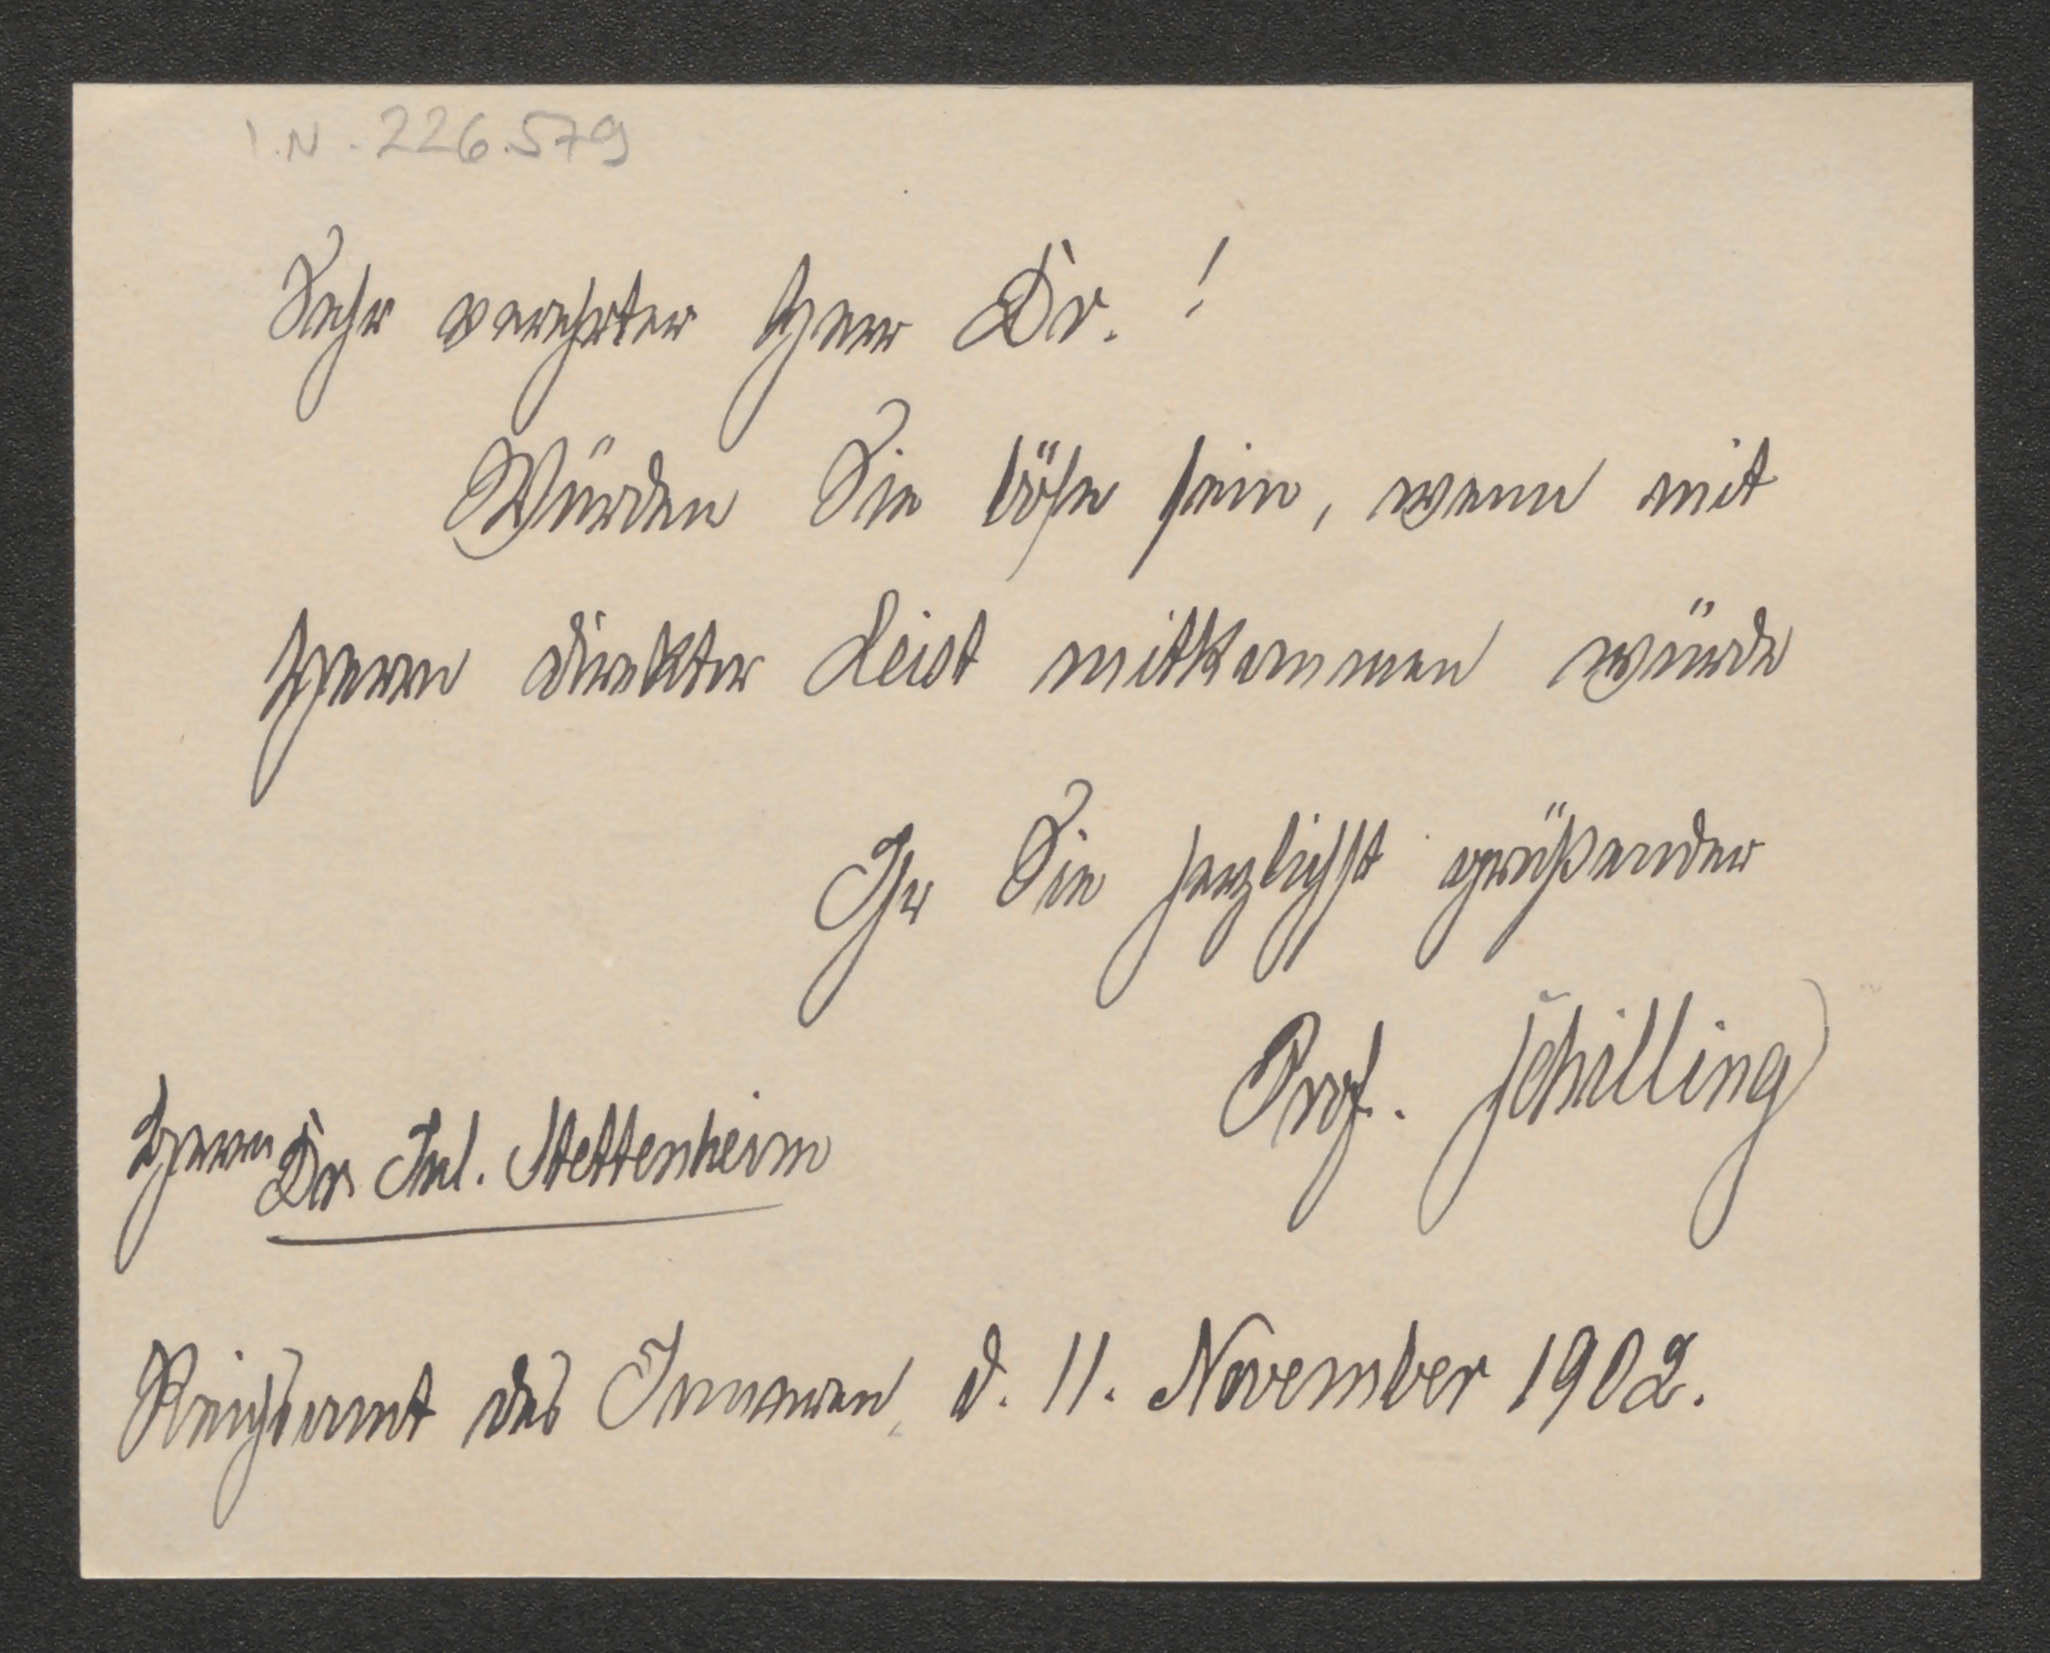 I.N. 226.579
Sehr verehrter Herr Dr.!
Würden Sie böse sein, wenn mit
Herrn direktor Leist mitkommen würde
Ihr Sie herzlichst grüßender
Prof. Schilling
Herrn Dr. Jul. Stettenheim
Reichsamt des Inneren, d. 11. November 1902.